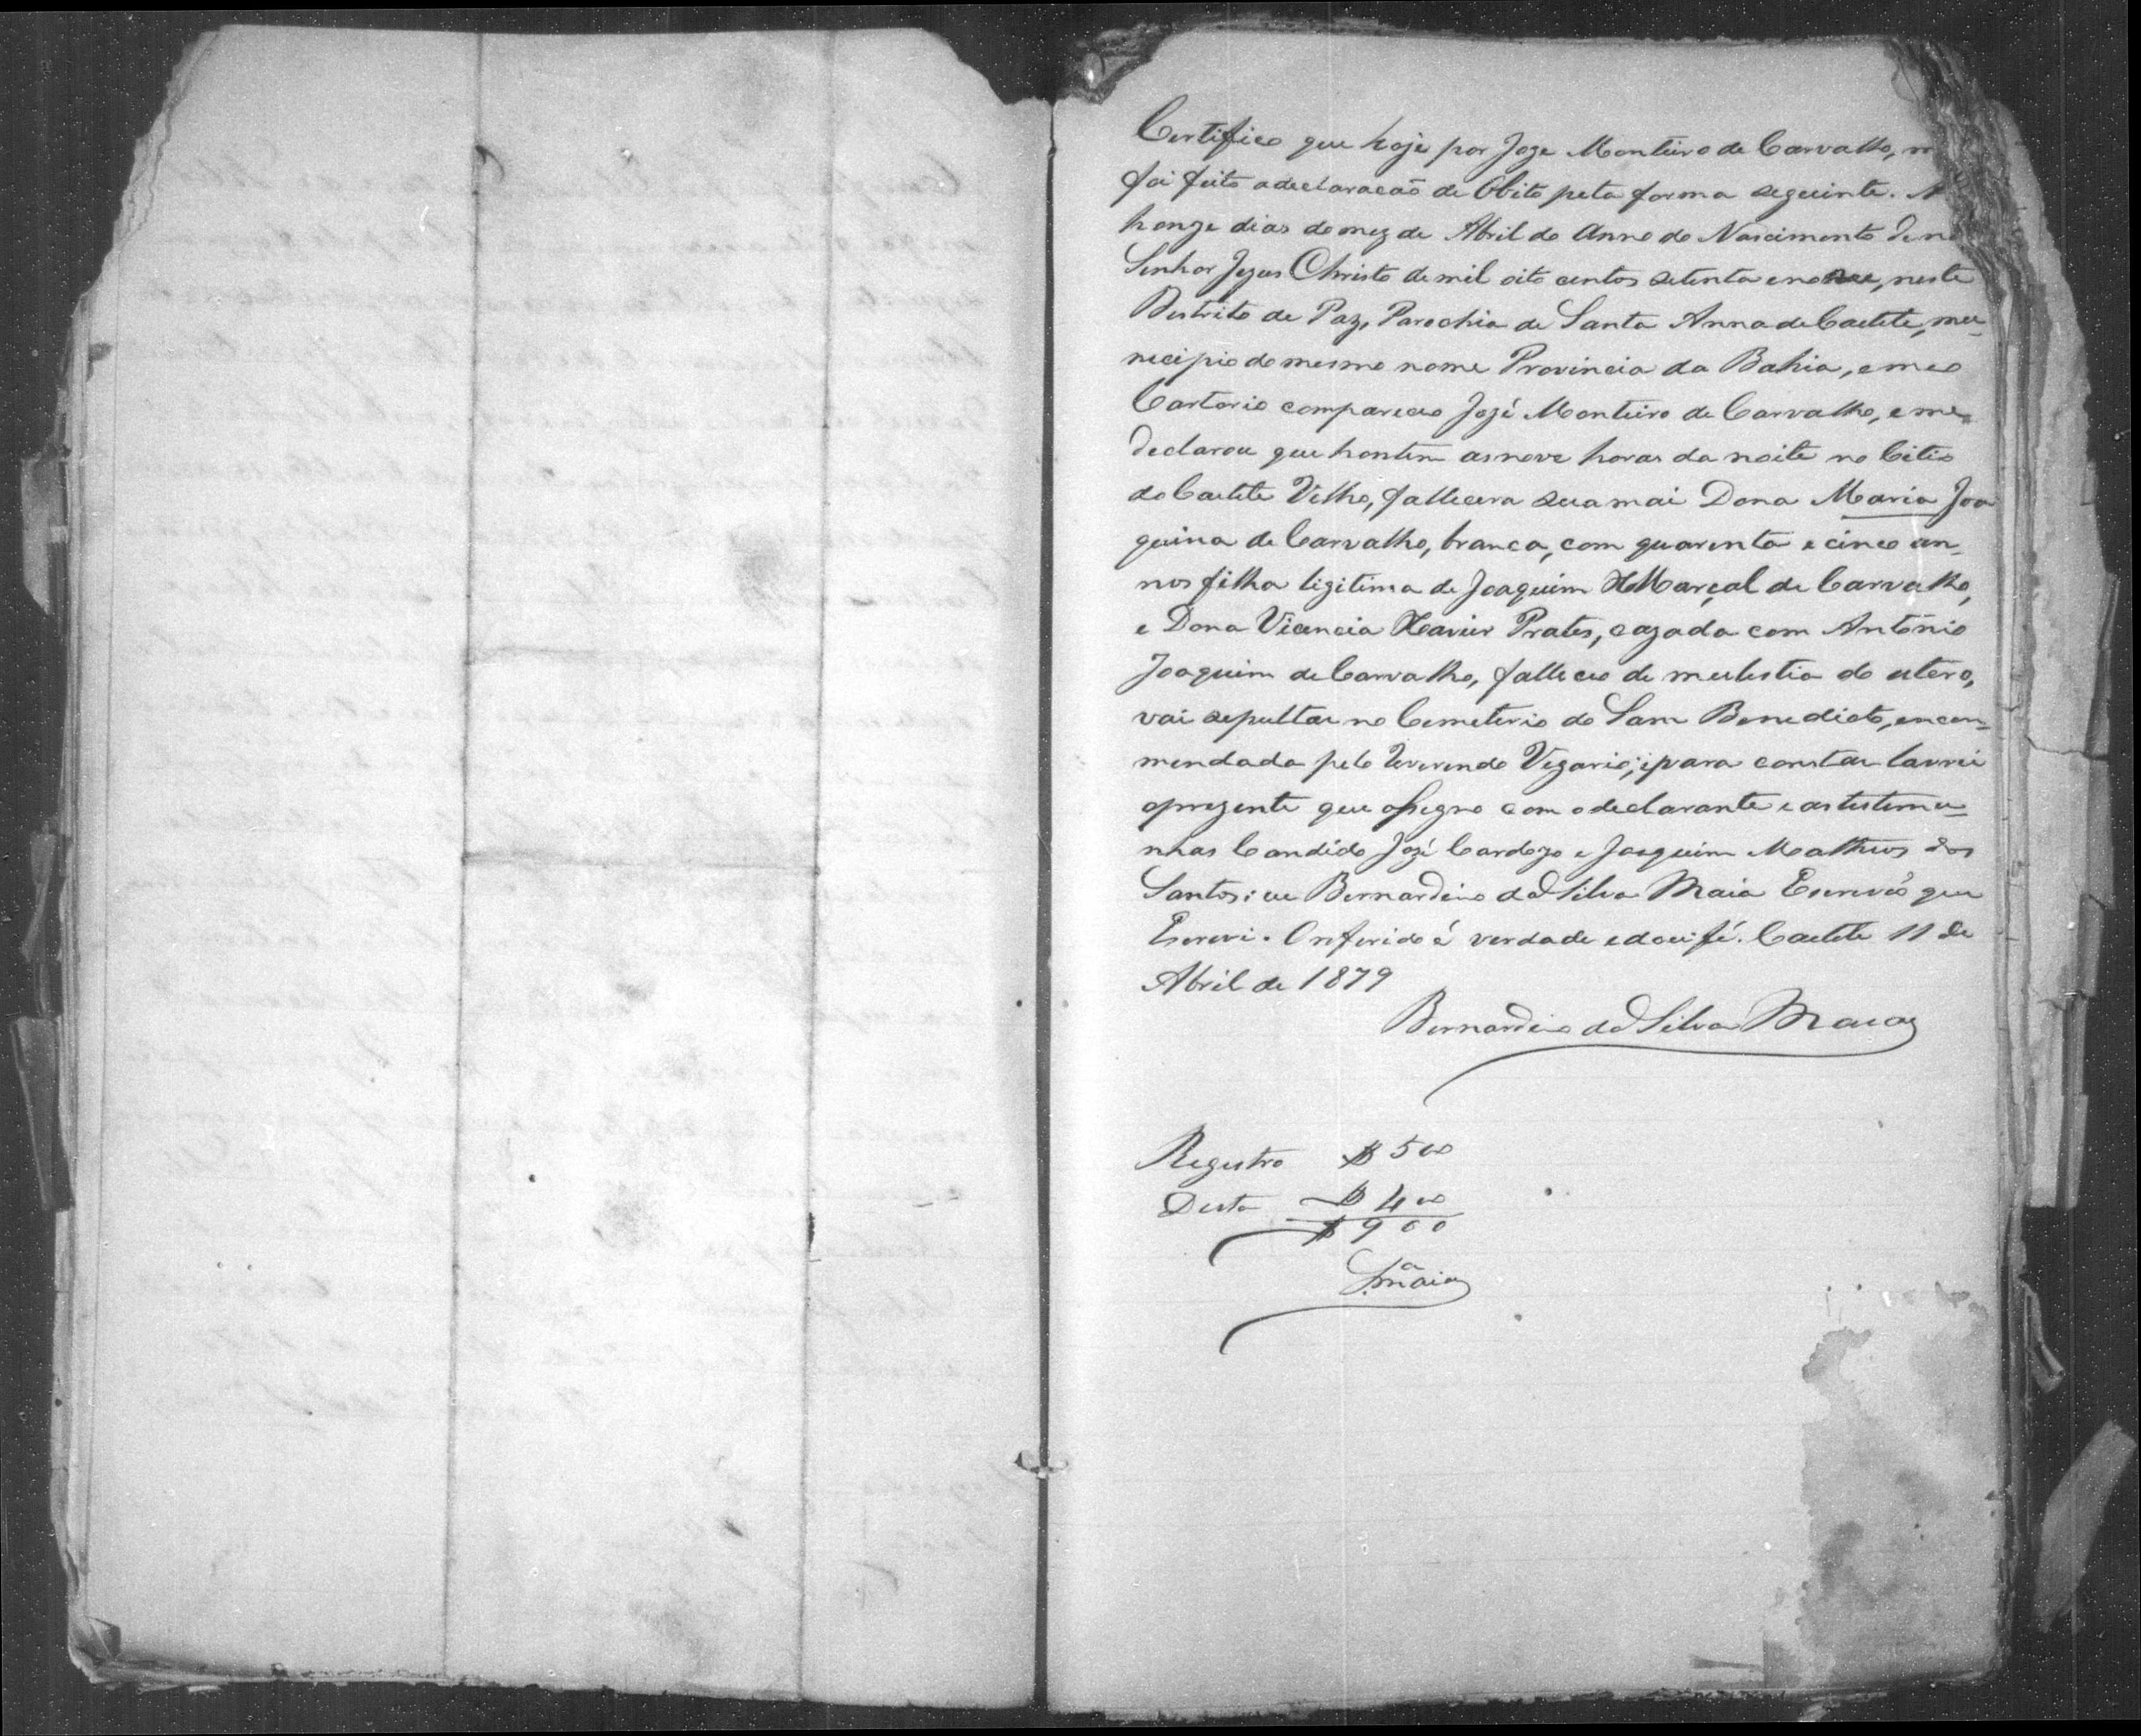 Certifico que hoje por Joze Monteiro de Carvalho,
foi feito a declaracaõ de Obito pela forma seguinte.
honze dias do mez de Abril do Anno do Nascimento de
Senhor Jezus Christo de mil oito centos setenta e nove, neste
Destrito de Paz, Parochia de Santa Anna de Caetete, mu-
necipio do mesmo nome Provincia da Bahia, e meo
Cartorio compareceo Jozé Monteiro de Carvalho, e me
declarou que hontem as nove horas da noite no Citio
do Caetete Velho, fallecera sua mai Dona Maria Joa
quina de Carvalho, branca, com quarenta e cinco an-
nos filha ligitima de Joaquim Marçal de Carvalho,
e Dona Vicencia Xavier Prates, cazada com Antonio
Joaquim de Carvalho, falleceo de mulestia do utero,
vai sepultar no Cemeterio de Sam Benedicto, encom-
mendada pelo Reverendo Vigario; e para constar lavrei
o prezente que assegno com o declarante e as testemu-
nhas Candido Jozé Cardozo e Joaquim Matheus dos
Santos: eu Bernardino da Silva Maia Escrivaõ que
Escrevi. O referido é verdade e dou fé. Caetete 11 de
Abril de 1879
Bernardino da Silva Maia
Registro $500
Desta $400
$900
Sª Maia